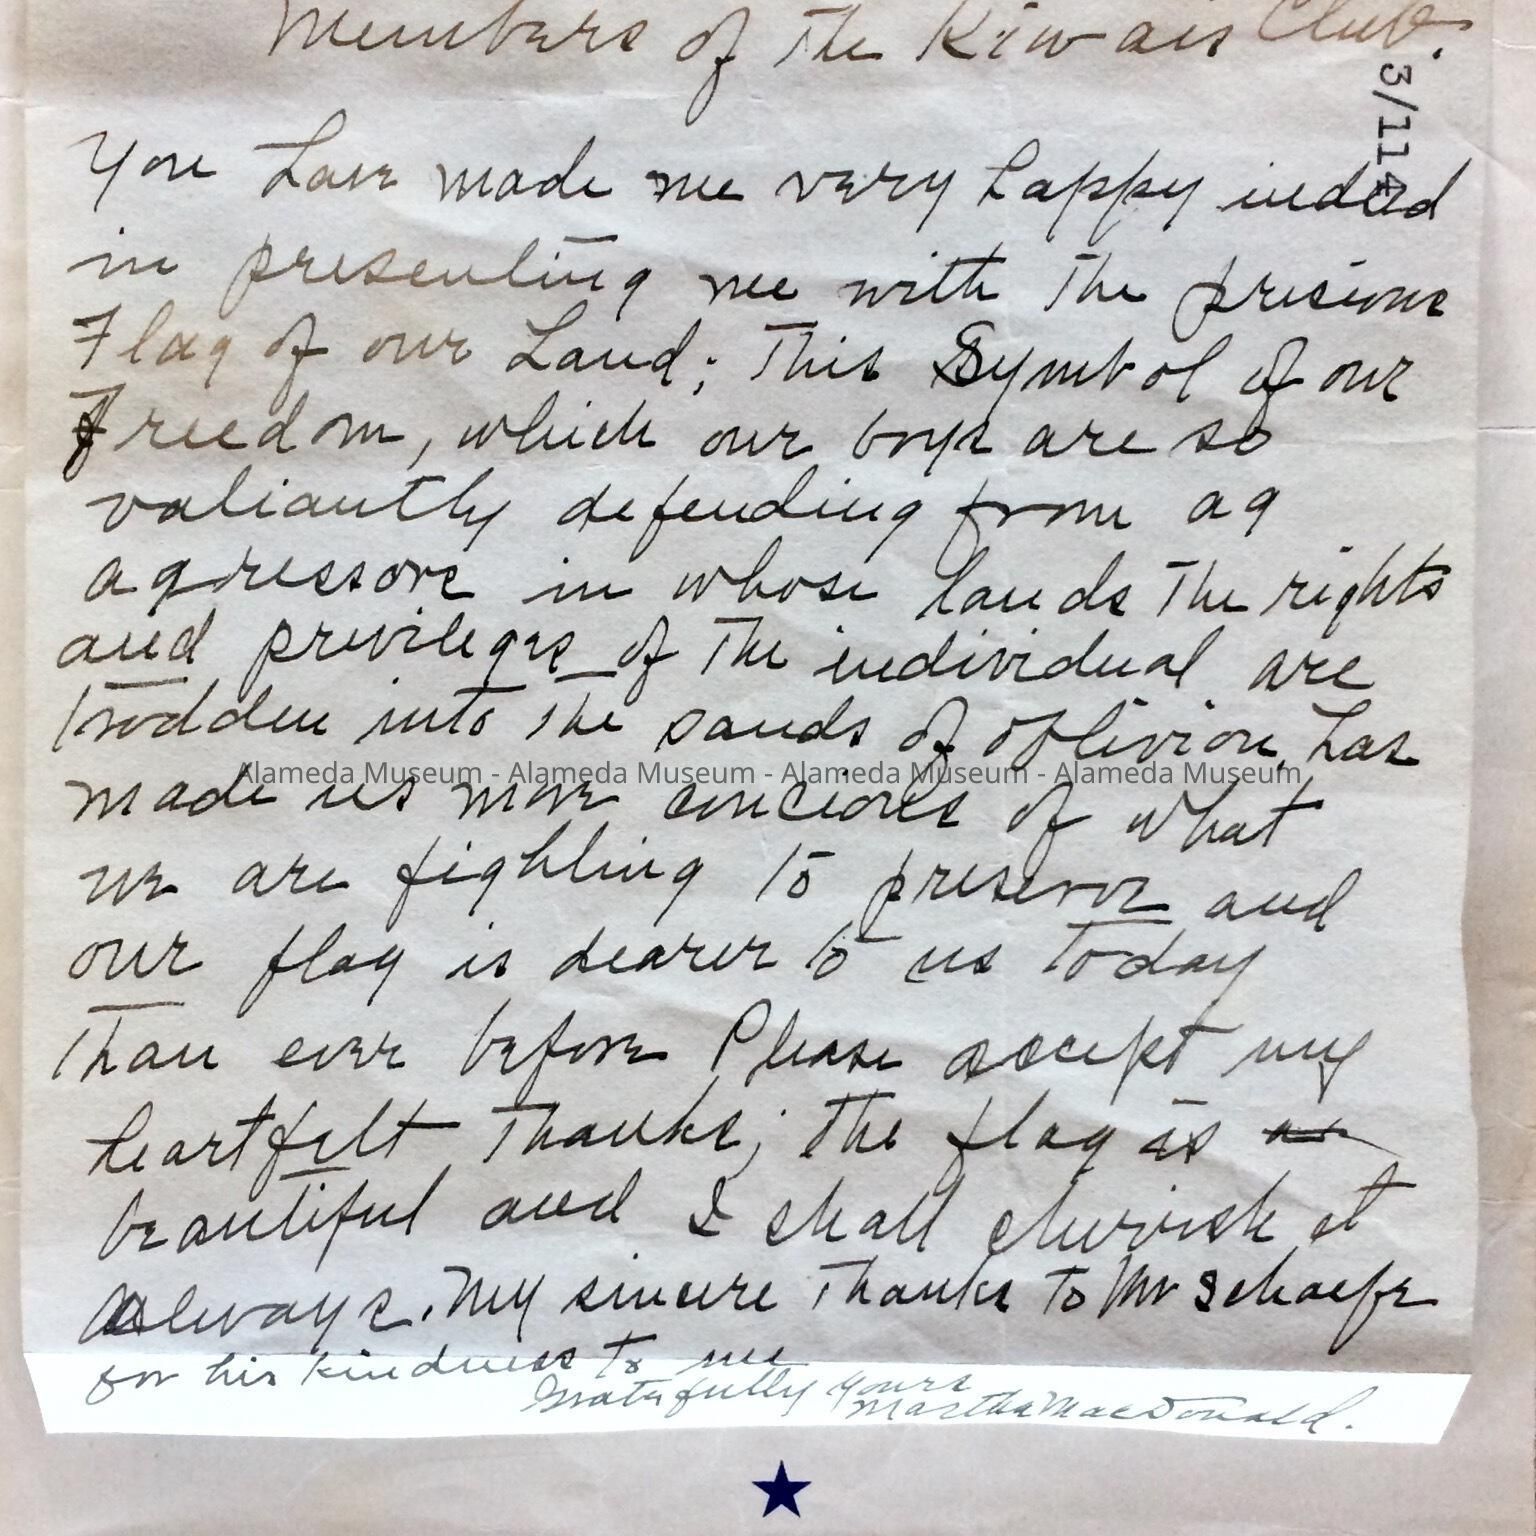 Members of the Kiwais Club.
3/114
You have made me very happy indeed
in presenting me with the presious
Flag of our Land; This Symbol of our
Freedom, which our boys are so
valiantly defending from ag
agressors in whose lands the rights
and privileges of the individual are
trodden into the sands of oblivion, has
Alameda Museum - Alameda Museum - Alameda Museum - Alameda Museum
made us more concious of what
we are fighting to preserve and
our flag is dearer to us today
than ever before Please accept my
heartfelt thanks; the flag is
beautiful and I shall cherish it
always. My sincere thanks to Mr Schaefe
for his kindness to me
Gratefully yours
Martha MacDonald.